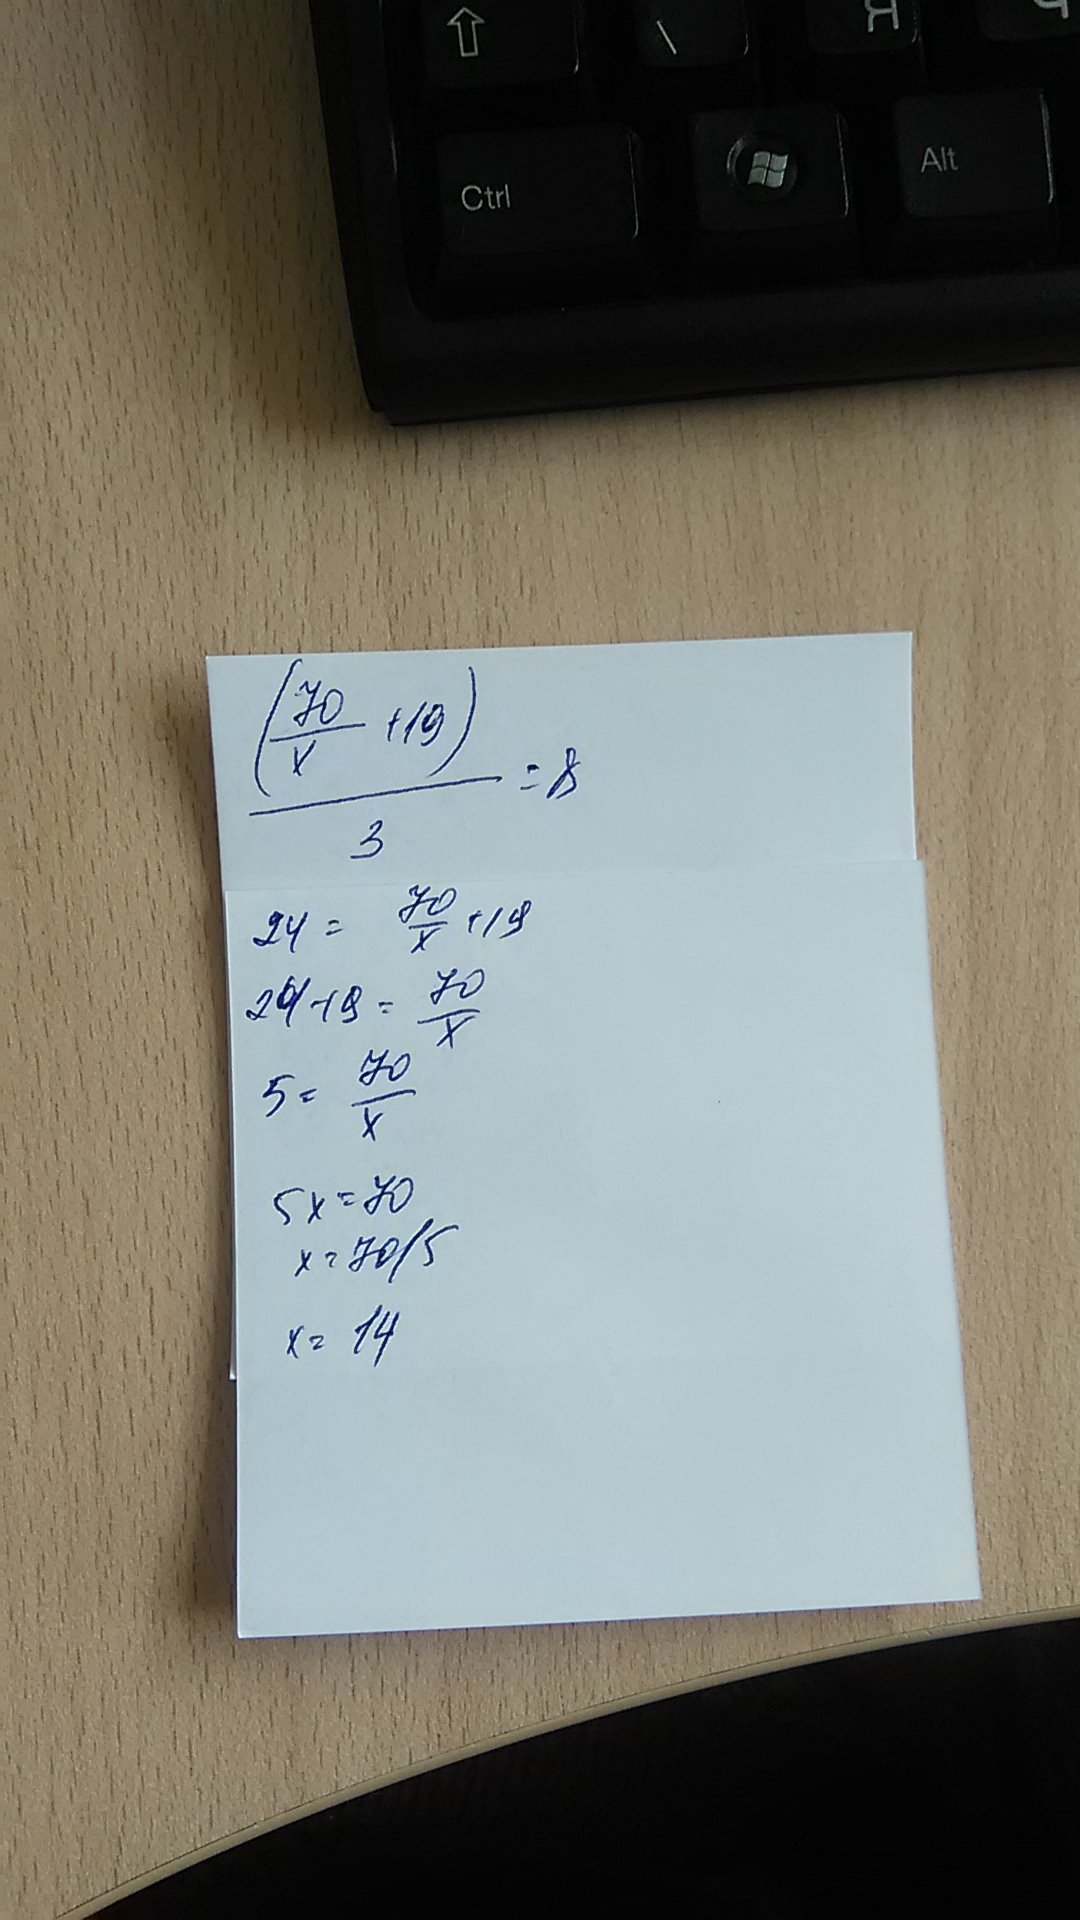 ⇧ \ Я Ч
Ctrl Alt
(70/x +19)/3 = 8
24 = 70/x +19
24-19 = 70/x
5 = 70/x
5x = 70
x = 70/5
x = 14